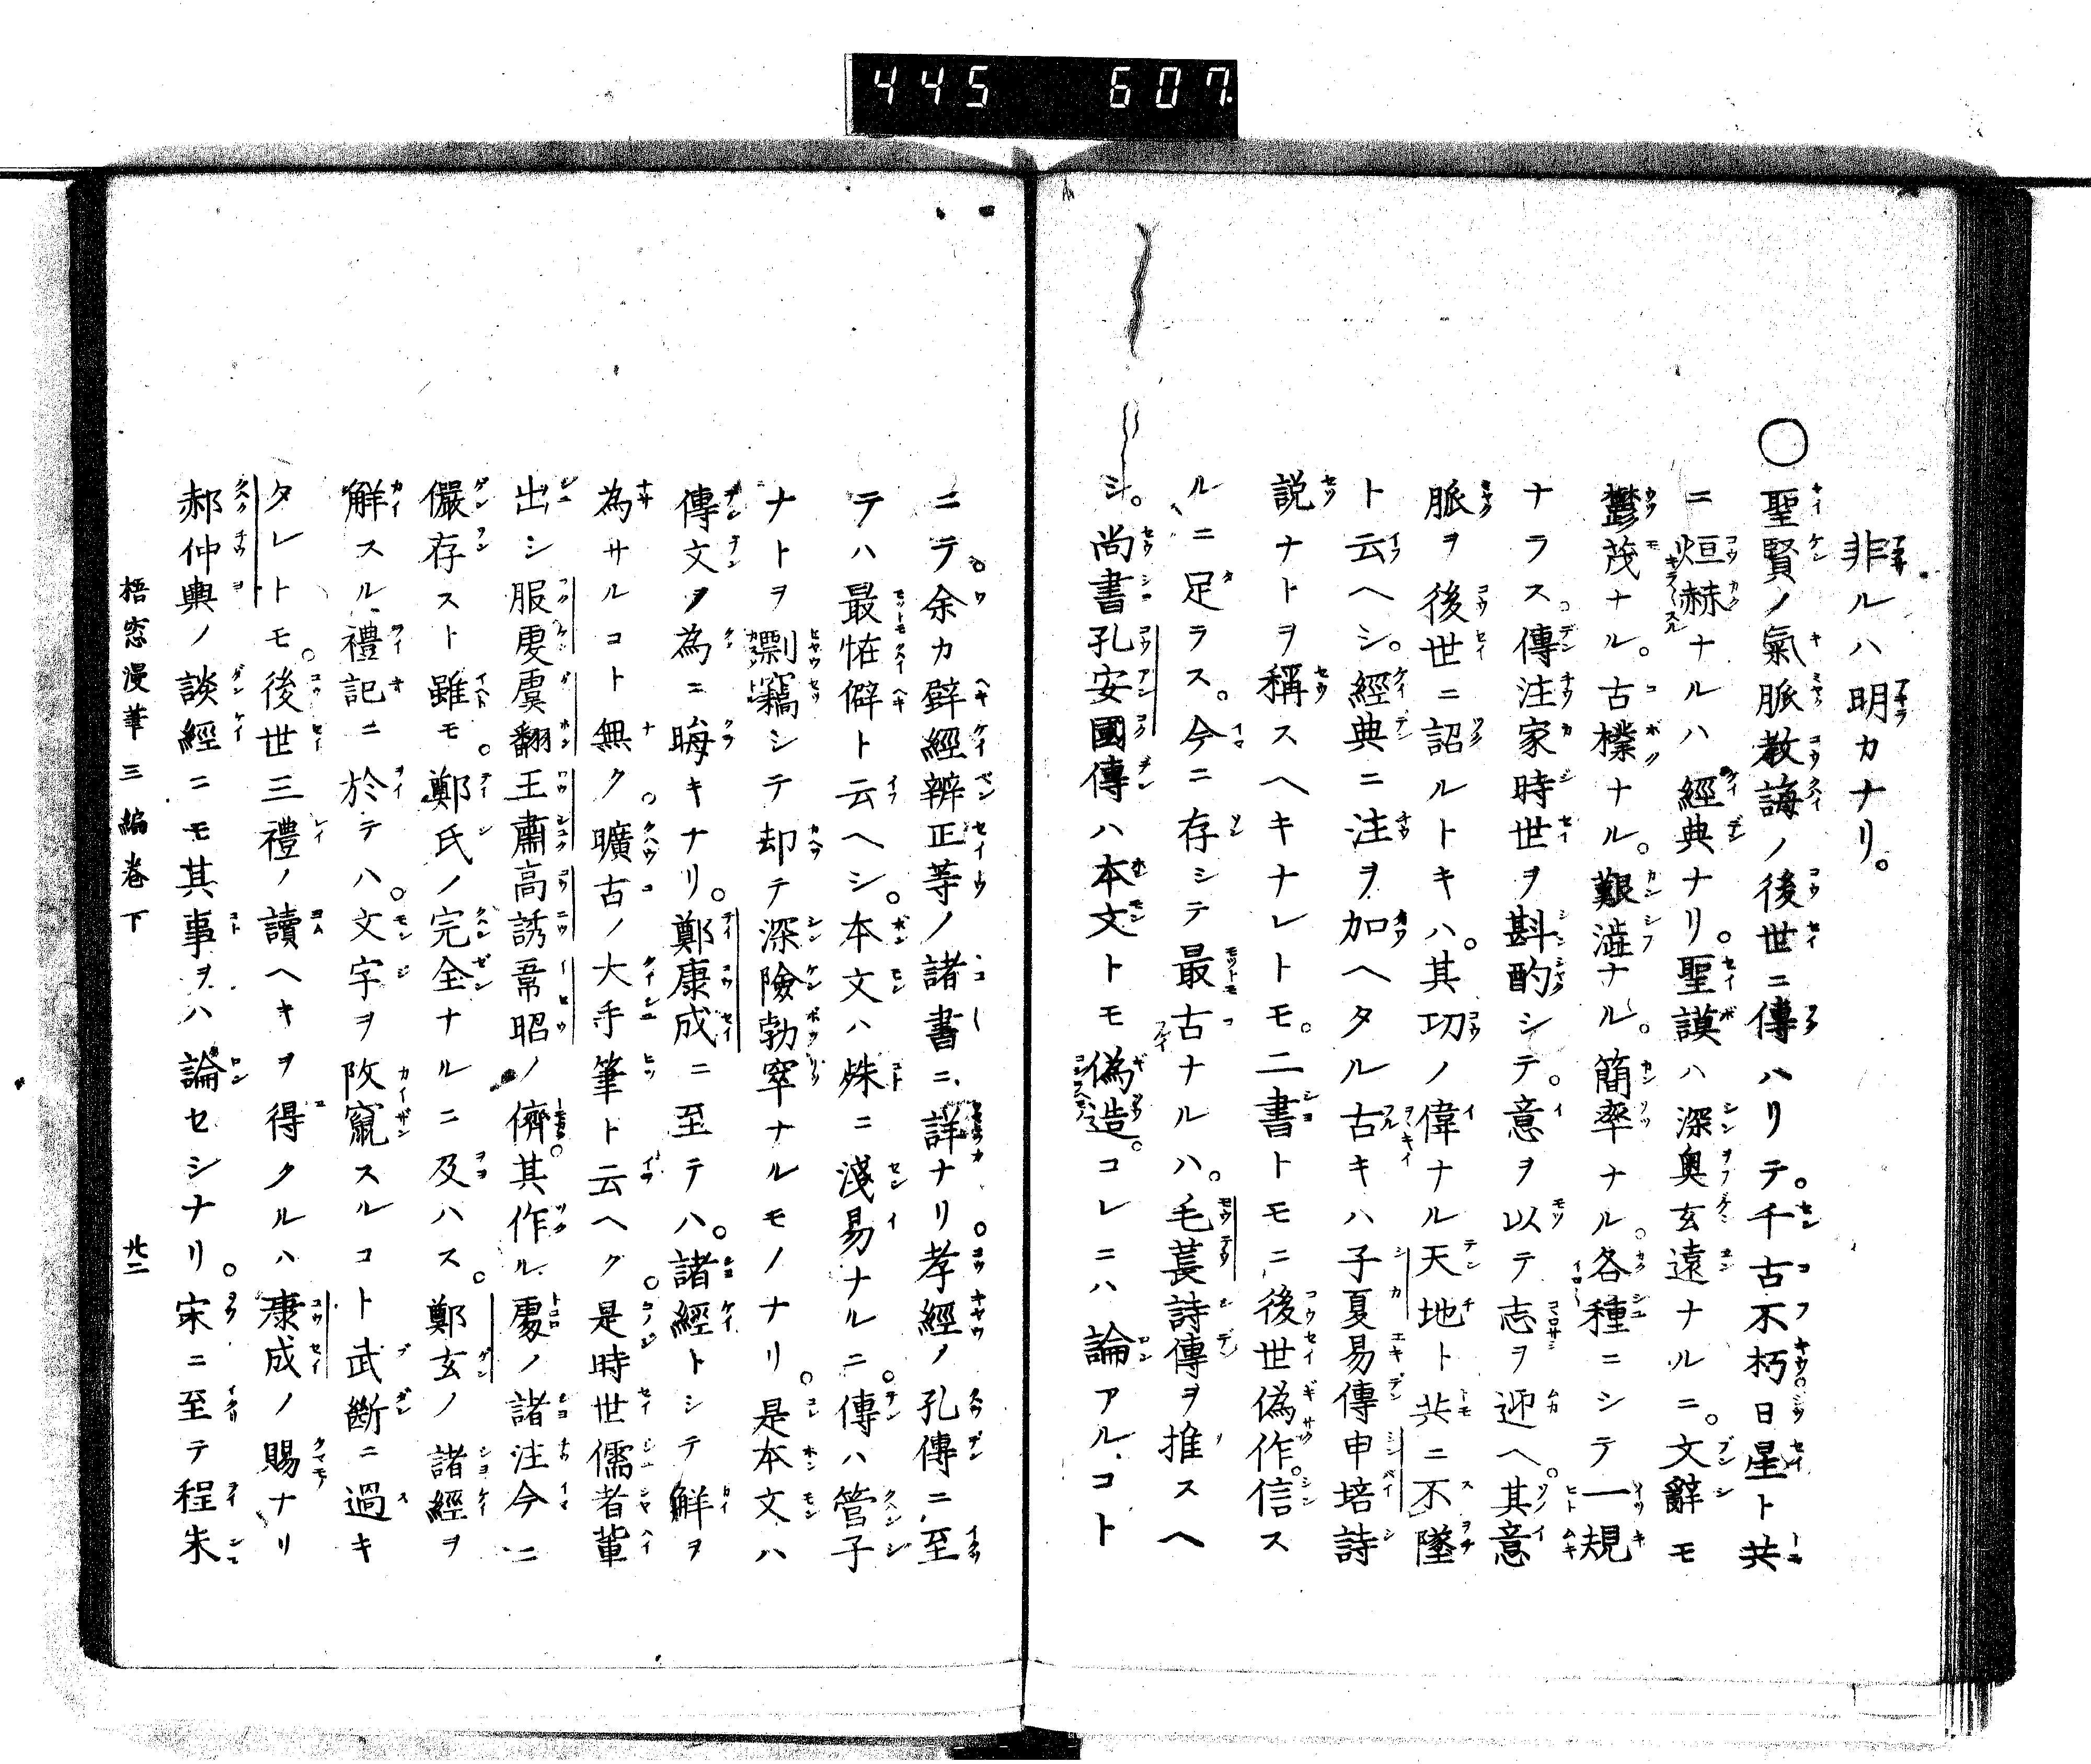 445 607
非ルハ明カナリ。
○聖賢ノ氣脈教誨ノ後世ニ傳ハリテ。千古不朽日星ト共
ニ烜赫ナルハ經典ナリ。聖謨ハ深奧玄遠ナルニ。文辭モ
鬱茂ナル。古樸ナル。艱澁ナル。簡率ナル。各種ニシテ一規
ナラス。傳注家時世ヲ斟酌シテ。意ヲ以テ志ヲ迎ヘ。其意
脈ヲ後世ニ詔ルトキハ。其功ノ偉ナル天地ト共ニ不墜
ト云ヘシ。經典ニ注ヲ加ヘタル古キハ子夏易傳申培詩
説ナトヲ稱スヘキナレトモ。二書トモニ後世偽作。信ス
ルニ足ラス。今ニ存シテ最古ナルハ。毛萇詩傳ヲ推スヘ
シ。尚書孔安國傳ハ本文トモ偽造。コレニハ論アルコト
ニテ。余カ壁經辨正等ノ諸書ニ詳ナリ。孝經ノ孔傳ニ至
テハ最怪僻ト云ヘシ。本文ハ殊ニ淺易ナルニ。傳ハ管子
ナトヲ剽竊シテ却テ深險勃窣ナルモノナリ。是本文ハ
傳文ノ為ニ晦キナリ。鄭康成ニ至テハ。諸經トシテ解ヲ
為サルコト無ク。曠古ノ大手筆ト云ヘク。是時世儒者輩
出シ服虔虞翻王肅高誘韋昭ノ儕。其作ル處ノ諸注今ニ
儼存スト雖モ。鄭氏ノ完全ナルニ及ハス。鄭玄ノ諸經ヲ
解スル禮記ニ於テハ。文字ヲ改竄スルコト武斷ニ過キ
タレトモ。後世三禮ノ讀ヘキヲ得クルハ康成ノ賜ナリ
郝仲輿ノ談經ニモ其事ヲハ論セシナリ。宋ニ至テ程朱
梧窓漫筆三編卷下 廿二